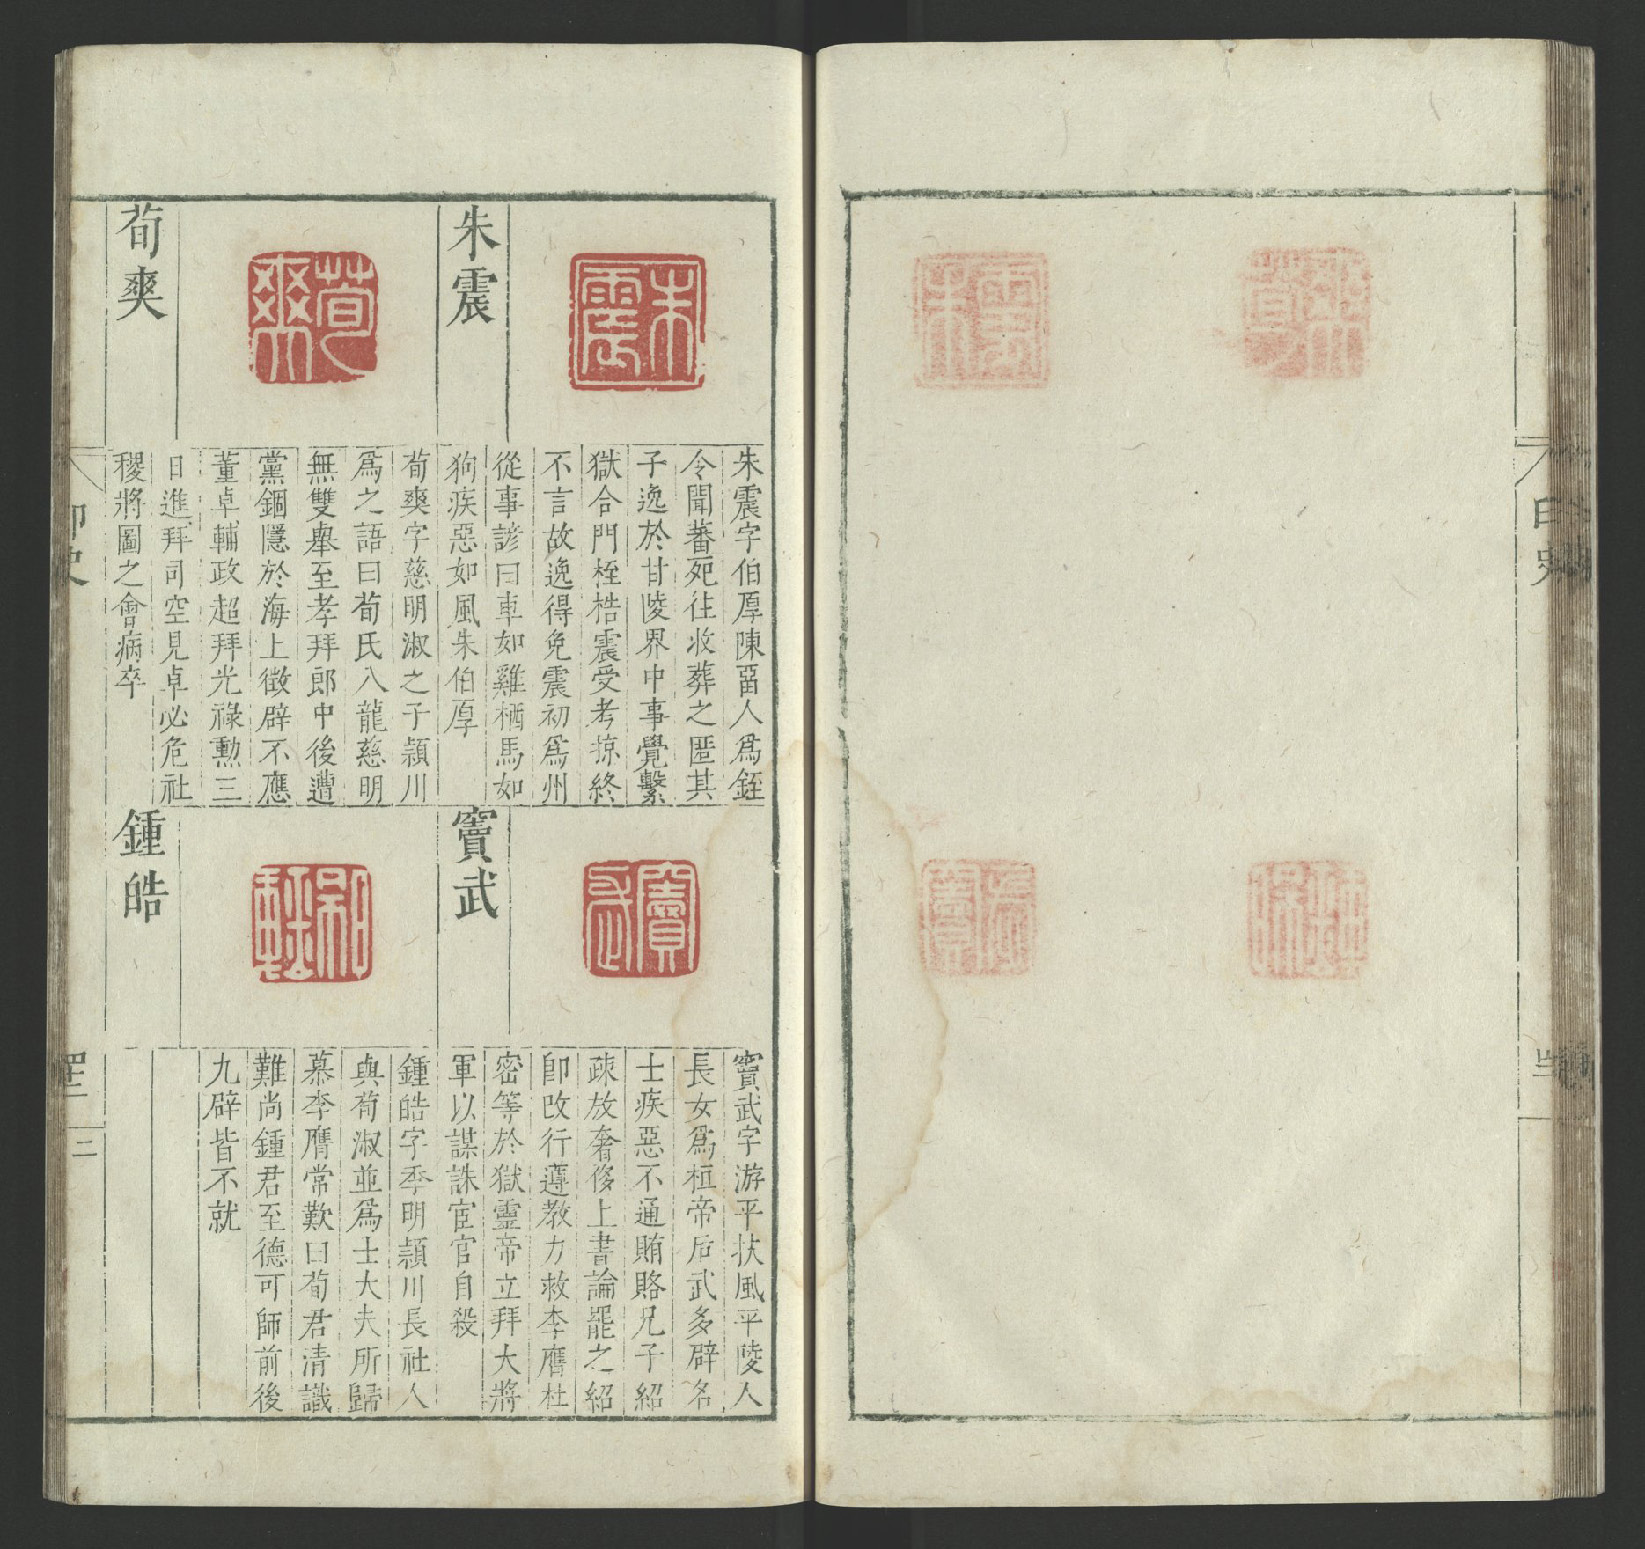 朱震
朱震字伯厚陳畱人爲銍
令聞蕃死往收葬之匿其
子逸於甘陵界中事覺繫
獄合門桎梏震受考掠終
不言故逸得免震初爲州
從事諺曰車如雞栖馬如
狗疾惡如風朱伯厚
荀爽
荀爽字慈明淑之子潁川
爲之語曰荀氏八龍慈明
無雙舉至孝拜郎中後遭
黨錮隱於海上徵辟不應
董卓輔政超拜光祿勳三
日進拜司空見卓必危社
稷將圖之會病卒
竇武
竇武字游平扶風平陵人
長女爲桓帝后武多辟名
士疾惡不通賄賂兄子紹
疎放奢侈上書論罷之紹
卽改行遵教力救李膺杜
密等於獄靈帝立拜大將
軍以謀誅宦官自殺
鍾皓
鍾皓字季明潁川長社人
與荀淑並爲士大夫所歸
慕李膺常歎曰荀君清識
難尚鍾君至德可師前後
九辟皆不就
印史